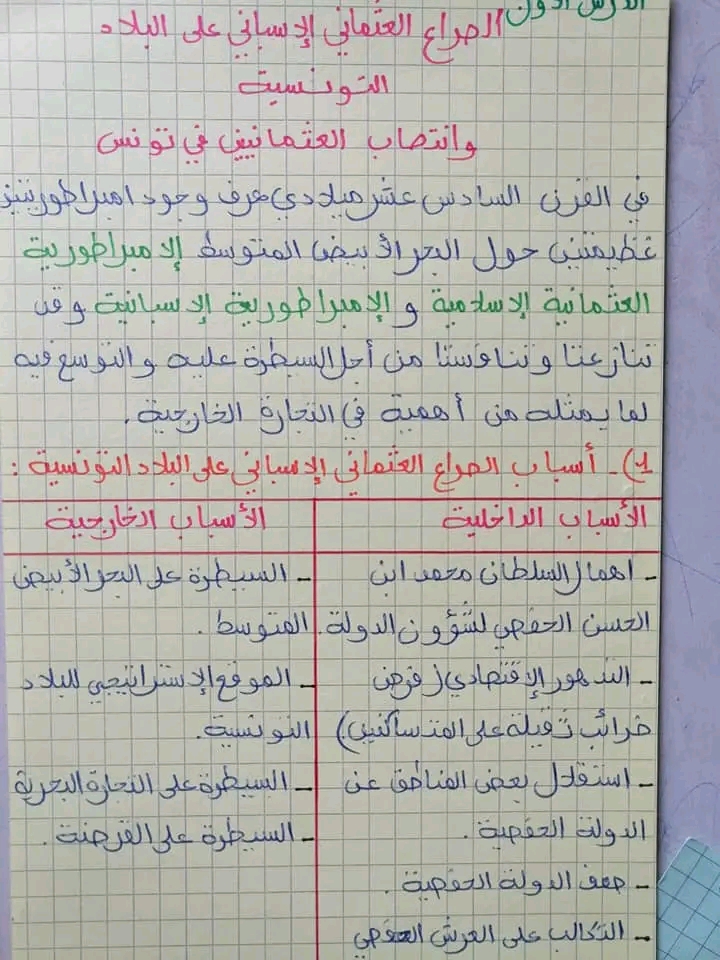 الدرس الأول
الصراع العثماني الإسباني على البلاد
التونسية
وانتصاب العثمانيين في تونس
في القرن السادس عشر ميلادي عرف وجود امبراطوريتين
عظيمتين حول البحر الأبيض المتوسط الإمبراطورية
العثمانية الإسلامية والإمبراطورية الإسبانية وقد
تنازعتا وتنافستا من أجل السيطرة عليه والتوسع فيه
لما يمثله من أهمية في التجارة الخارجية.
1)- أسباب الصراع العثماني الإسباني على البلاد التونسية :
الأسباب الداخلية
- اهمال السلطان محمد ابن
الحسن الحفصي لشؤون الدولة.
- التدهور الإقتصادي (فرض
ضرائب ثقيلة على المتساكنين)
- استقلال بعض المناطق عن
الدولة الحفصية.
- ضعف الدولة الحفصية.
- التكالب على العرش الحفصي
الأسباب الخارجية
- السيطرة على البحر الأبيض
المتوسط.
- الموقع الإستراتيجي للبلاد
التونسية.
- السيطرة على التجارة البحرية
- السيطرة على القرصنة.